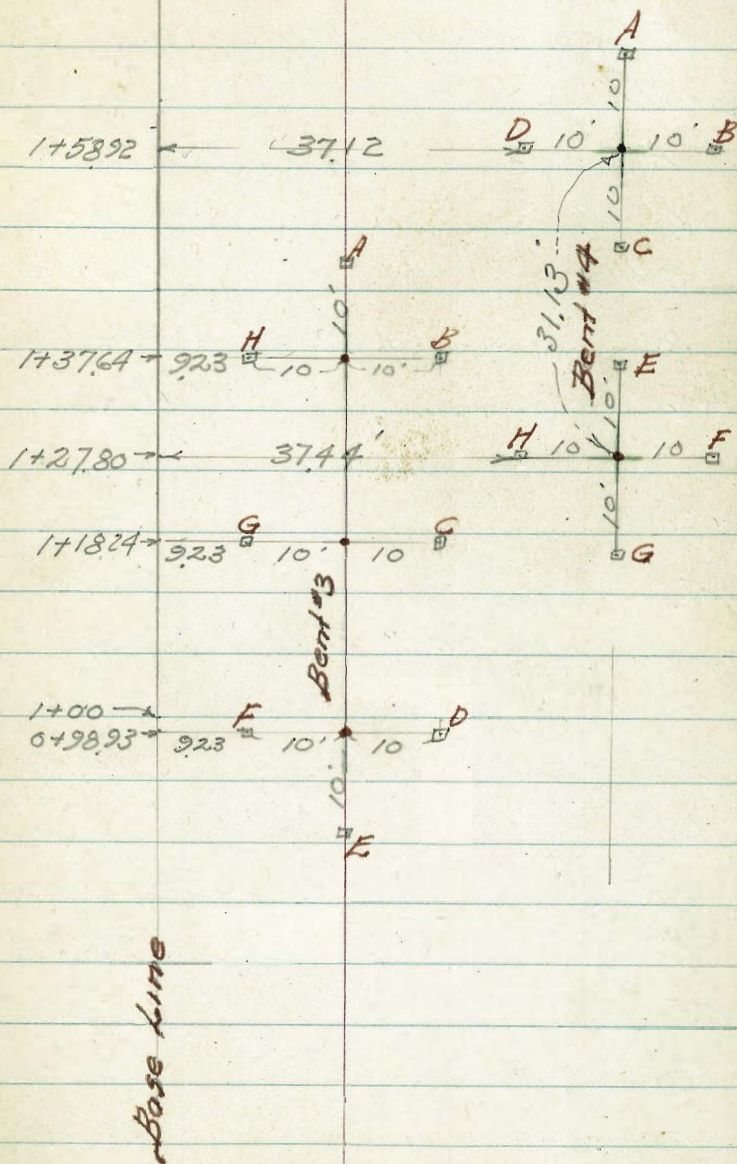 A
10
1+58.92 37.12 D 10' 10' B
10
C
A
10'
31.13'
Bent #4
1+37.64 9.23 H 10 10' B
E
10'
1+27.80 37.44' H 10' 10 F
10'
1+18.24 9.23 G 10' 10 C
G
Bent #3
1+00
0+98.93 9.23 F 10' 10 D
10'
E
Base Line